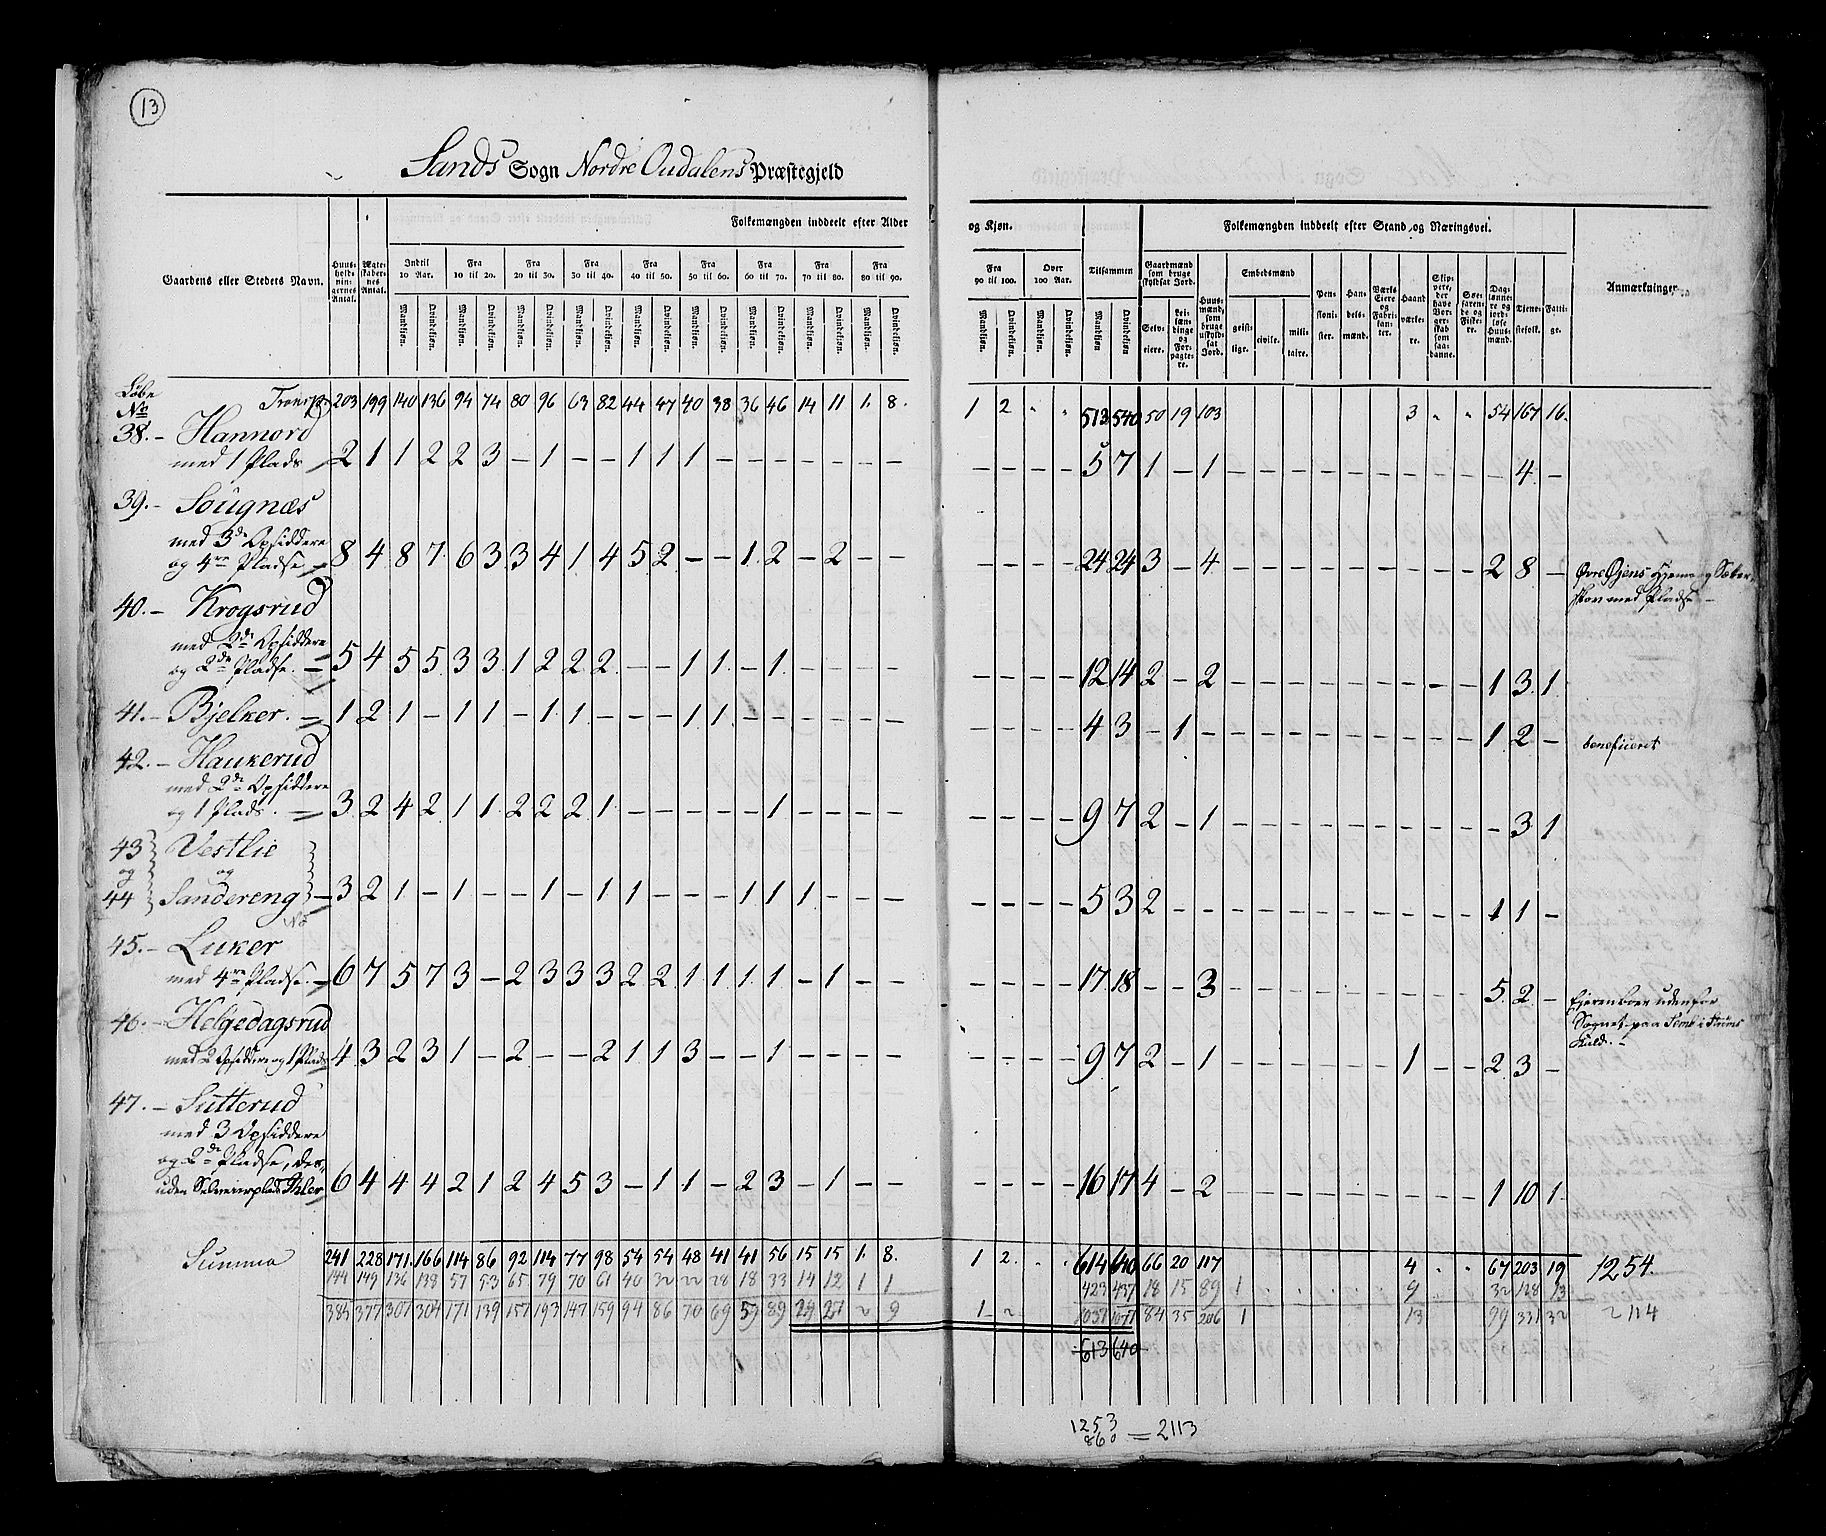 13
Sands Sogn Nordre Oudalens Præstegjeld
Folkemængden inddeelt efter Alder og Kjøn. Tilsammen Folkemængden inddeelt efter Stand og Næringsvei.
Gaardens eller Stedets Navn. Huus-holdnin-gernes Antal. Ægte-skaber-nes Antal. Indtil 10 Aar. Fra 10 til 20. Fra 20 til 30. Fra 30 til 40. Fra 40 til 50. Fra 50 til 60. Fra 60 til 70. Fra 70 til 80. Fra 80 til 90. Fra 90 til 100. Over 100 Aar.
Gaardmænd som bruge skyldsat Jord. Huus-mænd, som bruge uskyldsat Jord. Embedsmænd Pen-sioni-ster. Han-dels-mænd. Værks Eiere og Fabri-kan-ter. Haand værke-re. Skip-pere, der have Borger-skab som saa-danne. Søe-faren-de og Fiske-re. Dag-lønne-re og jord-løse Huus-mænd. Tjene-stefolk. Fatti-ge. Anmærkninger
Mandkiøn. Qvindekiøn. Selv-eiere. Lei-læn-dinge og For-pagte-re. geist-lige. civile. mili-taire.
Løbe No Transp. 203 199 140 136 94 74 80 96 63 82 44 47 40 38 36 46 14 11 1. 8. 1 2 " " 513 540 50 19 103 3 " " 54 167 16.
38. – Hannord
med 1 Plads 2 1 1 2 2 3 – 1 – – 1 1 1 – – – – – – – – – – – 5 7 1 – 1 – – – – – – – – – – 4 –
39. – Sougnæs
med 3de Opsiddere
og 4re Pladse 8 4 8 7 6 3 3 4 1 4 5 2 – – 1 2 – 2 – – – – – – 24 24 3 – 4 – – – – – – – – – 2 8 – Øvre Øjens Hjems og Sæter
skov med Pladse –
40. – Krogsrud
med 2de Opsiddere
og 2de Pladse. 5 4 5 5 3 3 1 2 2 2 – – 1 1 – 1 – – – – – – – – 12 14 2 – 2 – – – – – – – – – 1 3 1.
41. – Bjelker. – 1 2 1 – 1 1 – 1 1 – – – 1 1 – – – – – – – – – – 4 3 – 1 – – – – – – – – – – 1 2 – beneficeret
42. – Haukerud
med 2de Opsiddere
og 1 Plads. 3 2 4 2 1 1 2 2 2 1 – – – – – 1 – – – – – – – – 9 7 2 – 1 – – – – – – – – – – 3 1
43 Vestlie
og og
44 Sandereng – 3 2 1 – 1 – – 1 – 1 1 – – – 1 1 1 – – – – – – – 5 3 2 – – – – – – – – – – – 1 1 –
45. – Luker
med 4re Pladse. 6 7 5 7 3 – 2 3 3 3 2 2 1 1 1 1 – 1 – – – – – – 17 18 – – 3 – – – – – – – – – 5 2 – Ejeren boer udenfor
Sognet paa
46. – Helgedagsrud
med 2 Opsiddere og 1 Plads 4 3 2 3 1 – 2 – – 2 1 1 3 – – 1 – – – – – – – – 9 7 2 – 1 – – – – – – 1 – – 2 3 –
47. – Sutterud
med 3 Opsiddere
og 2de Pladse, des-
uden 6 4 4 4 2 1 2 4 5 3 – 1 1 – 2 3 – 1 – – – – – – 16 17 4 – 2 – – – – – – – – – 1 10 1
Summa 241 228 171. 166 114 86 92 114 77 98 54 54 48 41 41 56 15 15 1. 8. 1 2. . . 614 640 66 20 117 4 " " 67 203 19 1254.
144 149 136 138 57 53 65 79 70 61 40 32 22 28 18 33 14 12 1 1 423 437 18 15 89 1 9 32 128 13
385 377 307 304 171 139 157 193 147 159 94 86 70 69 59 89 29 27 2 9 1 2 1037 1077 84 35 206 1 13 99 331 32 2114
613 640
1253
860 = 2113